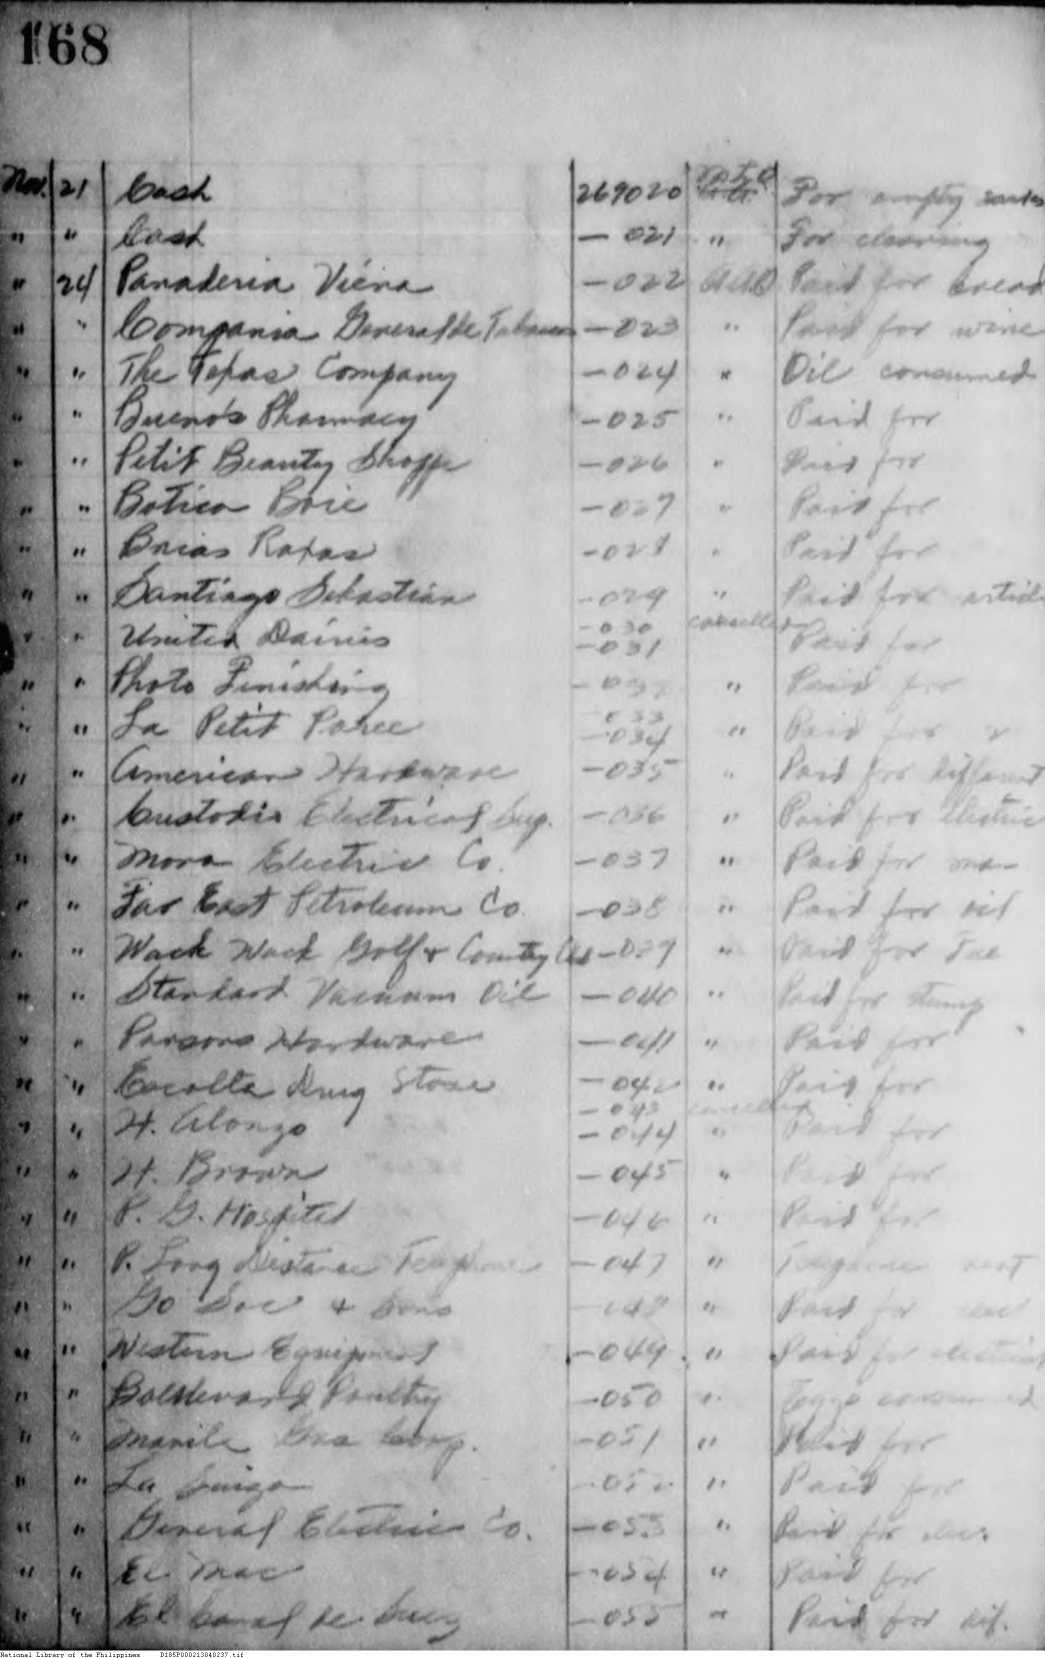 168
Nov. 21 Cash 269020 For empty
" " Cash — 021 " For cleaning
" 24 Panaderia Viena — 022 Paid for bread
" " Compania General de Tabacos — 023 " Paid for wine
" " The Texas Company — 024 " Oil consumed
" " Bueno's Pharmacy — 025 " Paid for
" " Petit Beauty Shoppe — 026 " Paid for
" " Botica Boie — 027 " Paid for
" " Brias Roxas — 028 " Paid for
" " Santiago Sebastian — 029 " Paid for article
— 030 cancelled
" " United Dairies — 031 Paid for
" " Photo Finishing — 032 " Paid for
— 033
" " La Petit Paree — 034 " Paid for
" " American Hardware — 035 " Paid for different
" " Custodio Electrical Sup. — 036 " Paid for Electric
" " Mora Electric Co. — 037 " Paid for ma-
" " Far East Petroleum Co. — 038 " Paid for oil
" " Wack Wack Golf & Country Club — 039 " Paid for
" " Standard Vacuum Oil — 040 " Paid for
" " Parsons Hardware — 041 " Paid for
" " Escolta Drug Store — 042 " Paid for
— 043 cancelled
" " H. Alonzo — 044 " Paid for
" " H. Brown — 045 " Paid for
" " P. G. Hospital — 046 " Paid for
" " P. Long Distance Telephone — 047 " rent
" " Go Soc & Sons — 048 " Paid for
" " Western Equipment — 049 " Paid for electrical
" " Boulevard Poultry — 050 " Eggs consumed
" " Manila Gas Corp. — 051 " Paid for
" " La Suiza — 052 " Paid for
" " General Electric Co. — 053 " Paid for elec.
" " El Mac — 054 " Paid for
" " El Canal de Suez — 055 " Paid for dif.
National Library of the Philippines D185P000213840237.tif